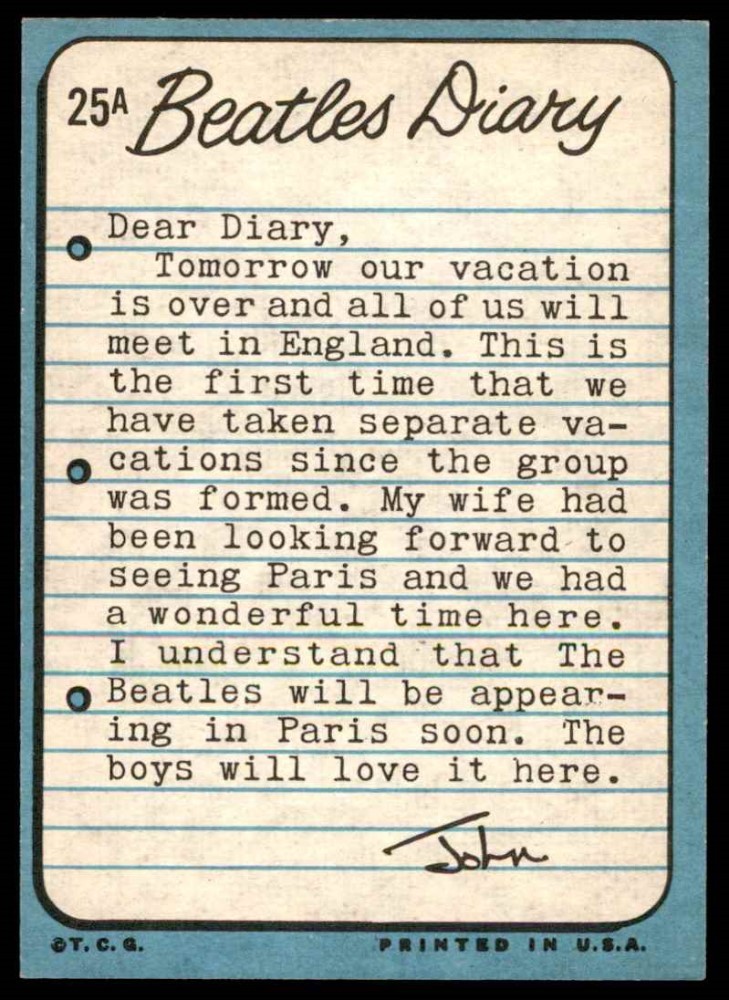 25A Beatles Diary
Dear Diary,
Tomorrow our vacation
is over and all of us will
meet in England. This is
the first time that we
have taken separate va-
cations since the group
was formed. My wife had
been looking forward to
seeing Paris and we had
a wonderful time here.
I understand that The
Beatles will be appear-
ing in Paris soon. The
boys will love it here.
John
©T.C.G. PRINTED IN U.S.A.